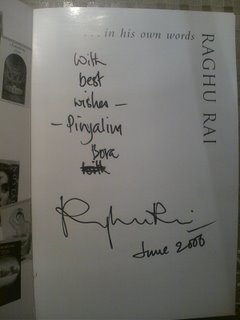 ... in his own words
RAGHU RAI
With
best
wishes —
- Pinyalim
Bora
Raghu Rai
June 2006